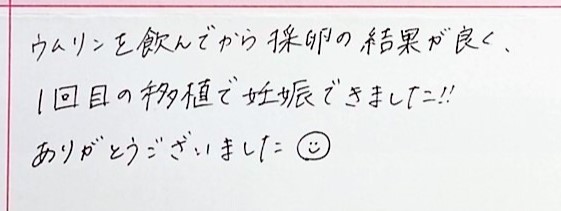 ウムリンを飲んでから採卵の結果が良く、
1回目の移植で妊娠できました!!
ありがとうございました☺